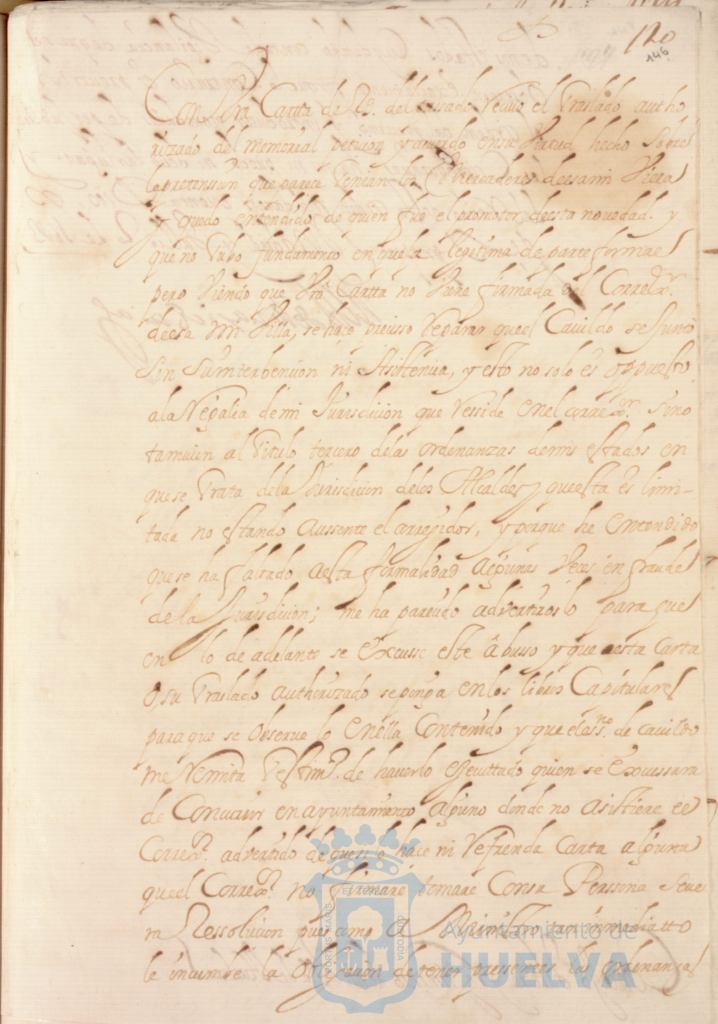 120
146
Con vra Carta de 20. del passado recivo el traslado autho
rizado del memorial peticion y acuerdo en su virtud hecho sobre
la pretension que parece tenian los Mercaderes de essa mi Villa
y quedo entendido de quien fue el promotor desta novedad. y
que no tubo fundamento en que la legitima de parte formase
pero viendo que vra Cartta no viene firmada del Correxr.
de esa mi Villa, se hace preciso reparar que el Cavildo se junto
sin su interbencion ni Asistencia, y esto no solo es opuesto
a la Regalia de mi Jurisdicion que resside en el correxr. sino
tamvien al titulo tercero de las ordenanzas de mis estados en
que se trata de la Jurisdicion de los Alcaldes y que esta es limi-
tada no estando aussente el corregidor, y porque he entendido
que se ha faltado a esta formalidad algunas veces en fraude
de la Jurisdicion; me ha parecido advertiroslo para que
en lo de adelante se excusse este Abusso y que esta carta
o su traslado authorizado se ponga en los libros Capitulares
para que se observe lo en ella Contenido y que el essno. de cavildo
me remita testimo. de haverlo ejecuttado quien se excussara
de Concurir en ayuntamiento alguno donde no asistiere el
Correxr. advertido de que si lo hace ni refrenda Carta alguna
que el Correxr. no firmare tomare Con su Perssona seve
ra Ressolucion pues como A Ministro tan inmediatto
le incumbe la Obligacion de tener pressentes las ordenanzas
Ayuntamiento de
HUELVA